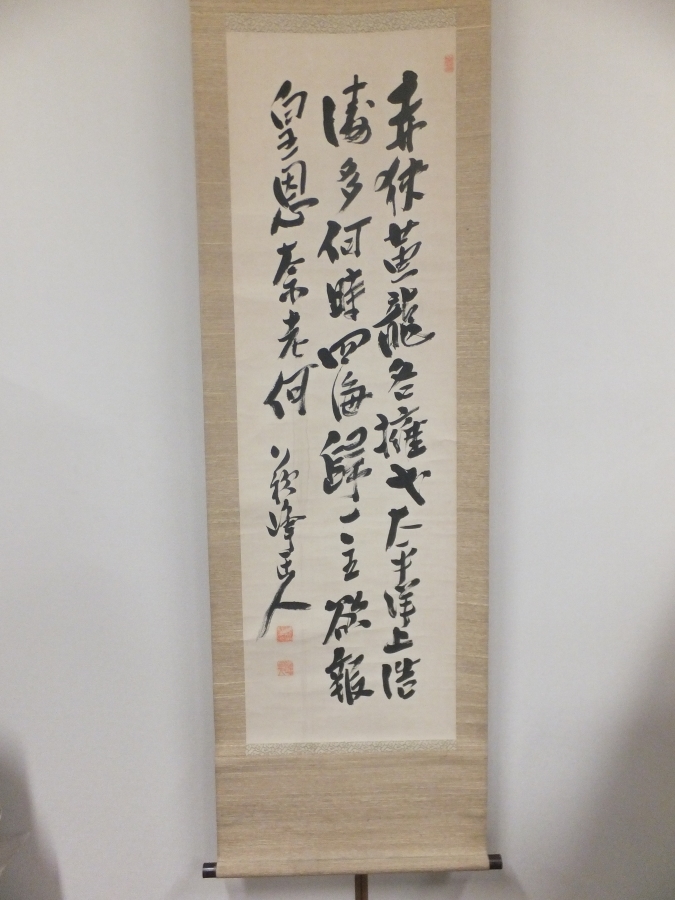 赤狄黄龍各擁戈太平洋上浩
濤多何時四海歸一主欲報
皇恩奈老何 蘇峰正人